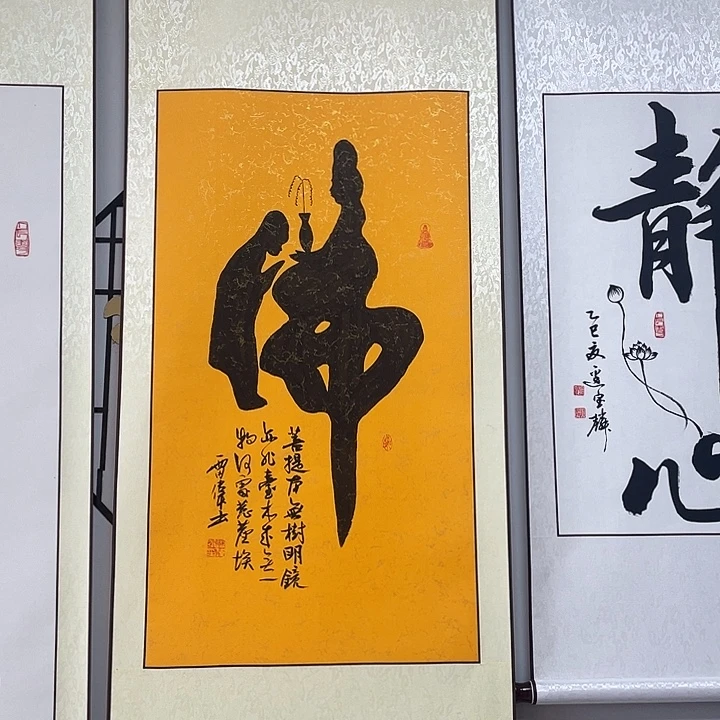 佛
菩提本無樹明鏡
亦非臺本來無一
物何處惹塵埃
靜心
乙巳夏